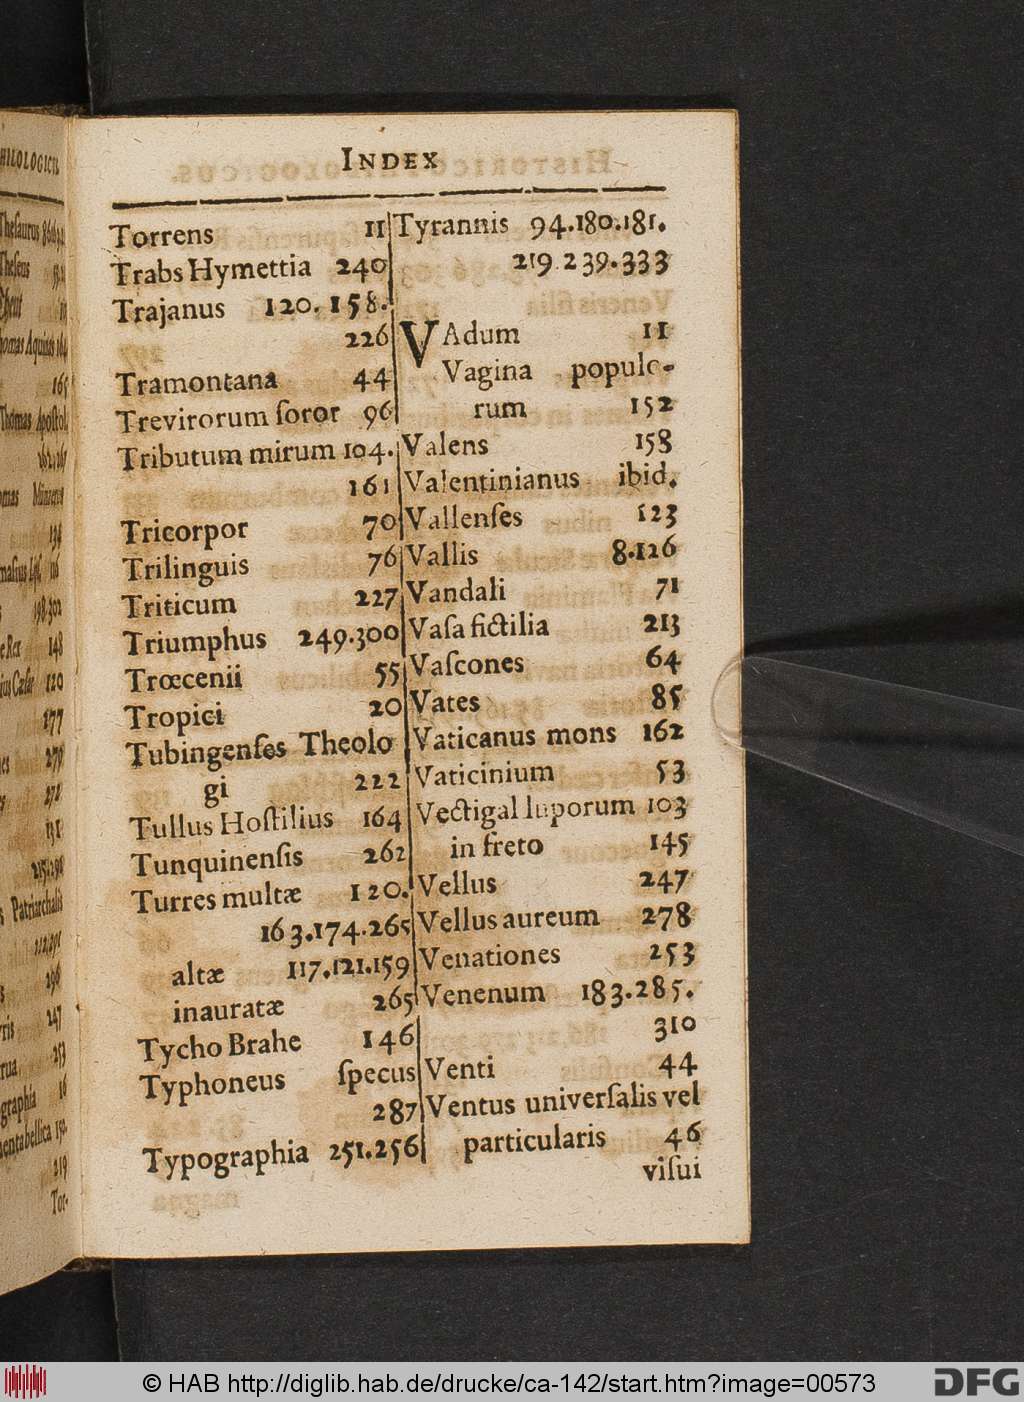 INDEX
Torrens 11
Trabs Hymettia 240
Trajanus 120. 158.
226
Tramontana 44
Trevirorum ſoror 96
Tributum mirum 104.
161
Tricorpor 70
Trilinguis 76
Triticum 227
Triumphus 249.300
Trœcenii 55
Tropici 20
Tubingenſes Theolo
gi 222
Tullus Hoſtilius 164
Tunquinenſis 262
Turres multæ 120.
163.174.265
altæ 117.121.159
inauratæ 265
Tycho Brahe 146
Typhoneus ſpecus
287
Typographia 251.256
Tyrannis 94.180.181.
219.239.333
VAdum 11
Vagina populo-
rum 152
Valens 158
Valentinianus ibid.
Vallenſes 123
Vallis 8.126
Vandali 71
Vaſa fictilia 213
Vaſcones 64
Vates 85
Vaticanus mons 162
Vaticinium 53
Vectigal luporum 103
in freto 145
Vellus 247
Vellus aureum 278
Venationes 253
Venenum 183.285.
310
Venti 44
Ventus univerſalis vel
particularis 46
viſui
© HAB http://diglib.hab.de/drucke/ca-142/start.htm?image=00573
DFG